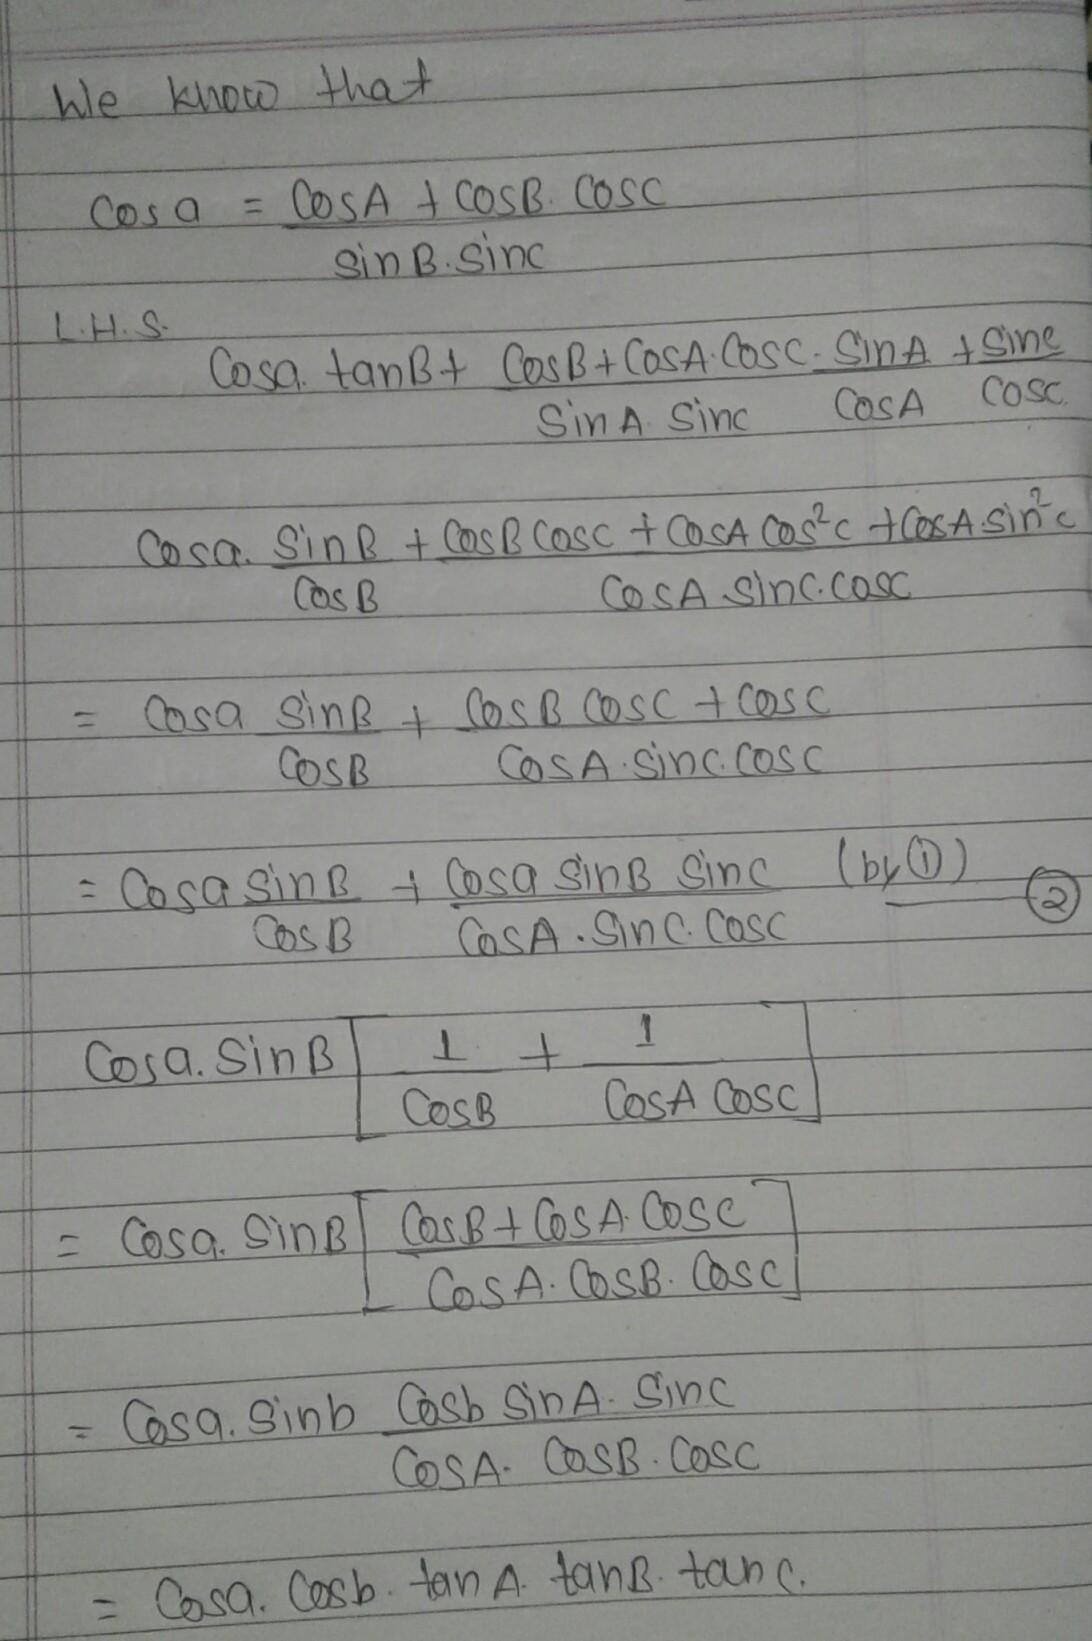 We know that
Cos a = CosA + CosB. Cosc
sinB.sinc
L.H.S.
Cosa. tanB+ CosB+CosA.Cosc. SinA + sinc
SinA. Sinc CosA Cosc.
Cosa. SinB + CosB Cosc + CosA Cos²c + CosA.sin²c
CosB CosA sinc.cosc
= Cosa SinB + CosB Cosc + Cosc
CosB CosA.sinc.cosc
= Cosa SinB + Cosa SinB Sinc (by ①)
②
CosB CosA.Sinc.Cosc
Cosa. SinB [ 1 + 1 ]
CosB CosA Cosc
= Cosa. SinB [ CosB + CosA. Cosc ]
CosA. CosB. Cosc
= Cosa. Sinb Cosb SinA. Sinc
CosA. CosB. Cosc
= Cosa. Cosb. tanA. tanB. tanc.